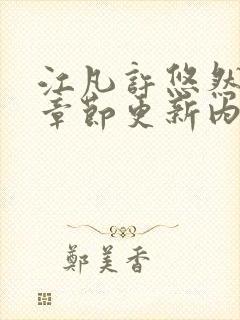 江凡許悠然
章節更新內
鄭美香